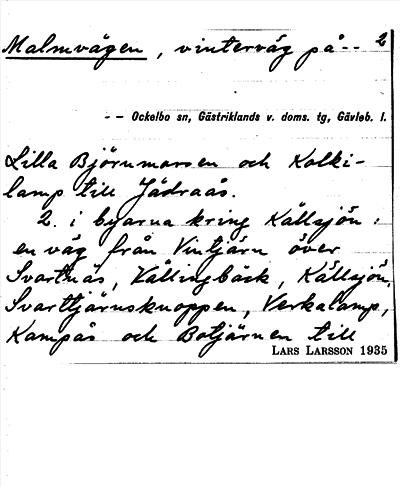 Malmvägen, vinterväg på-- 2
-- Ockelbo sn, Gästriklands v. doms. tg, Gävleb. l.
Lilla Björnmossen och Kolki-
lamp till Jädraås.
2. i byarna kring Källsjön:
en väg från Vintjärn över
Svartnäs, Vällingbäck, Källsjön,
Svarttjärnsknoppen, Verkalamp,
Kampås och Botjärnen till
LARS LARSSON 1935